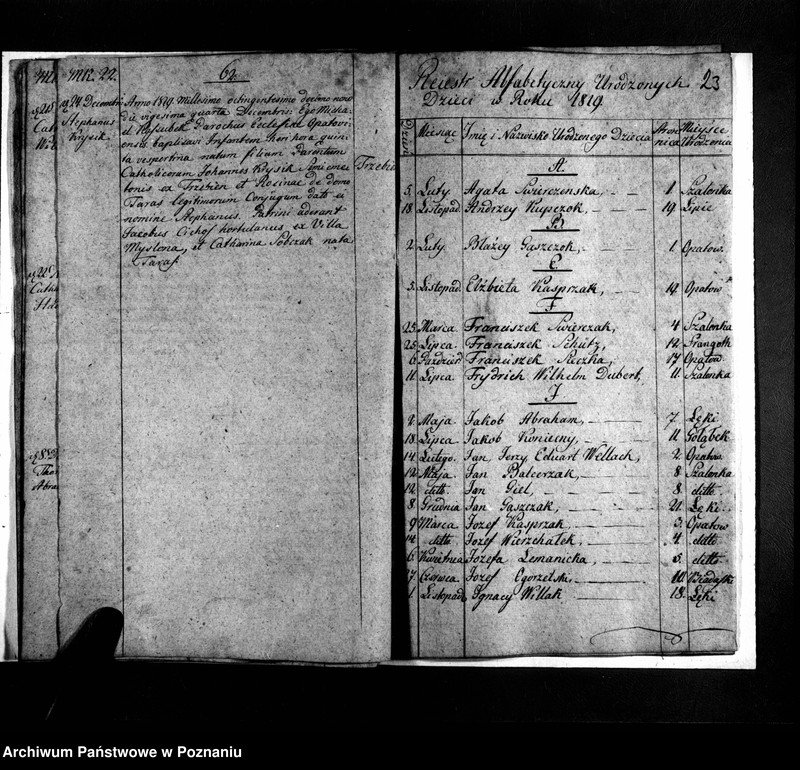 MR. 22.
62.
24 Decembris
Stephanus
Krysik.
Anno 1819. Millesimo octingentesimo decimo nono
die vigesima quarta Decembris; Ego Micha:
el Wysubek Parochus Ecclesiæ Opatovi:
ensis baptisavi Infantem heri hora quin:
ta vespertina natum filium Parentum
Catholicorum Johannes Krysik
ex Trzebien et Rosinae de domo
Taras legitimorum Conjugum dato ei
nomine Stephanus. Patrini aderant
Jacobus Cichoś hortulanus ex Villa
Myslona, et Catharina Sobczak nata
Taras.
Reiestr Alfabetyczny Urodzonych 23
Dzieci w Roku 1819
Miesiąc Imię i Nazwisko Urodzonego Dziecia Stronnica Mieysce Urodzenia
A.
5. Luty Agata Swierczenska, 1. Szalonka
18. Listopad Andrzey Kupczok, 19. Lipie
B.
2. Luty Błażey Gąszczok, 1. Opatow.
E.
5. Listopad. Elżbieta Kasprzak, 19. Opatow
F.
25. Marca Franciszek Swierczak, 4 Szalonka
25. Lipca. Franciszek Schütz, 12. Prangoth
6. Paździer. Franciszek Rzezka, 17 Opatow.
11. Lipca Frydrich Wilhelm Dubert, 11. Szalonka
J
2. Maja Jakob Abraham, 7. Łęki
18. Lipca Jakob Konieczny, 11. Gołąbek
14. Lutego. Jan Jerzy Eduart Wellach, 2. Opatow
12. Maja. Jan Balcerzak, 8 Szalonka
12. ditto. Jan Giel, 8. ditto.
8. Grudnia Jan Gąszczak, 21. Łęki
9 Marca Jozef Kasprzak. 3. Opatow
14. ditto Jozef Wierzchałek. 4. ditto
6. Kwietnia Jozefa Lemanicka, 5. ditto
7. Czerwca Jozef Egorzelski. 10.
1. Listopad. Ignacy Willak 18. Łęki
Archiwum Państwowe w Poznaniu